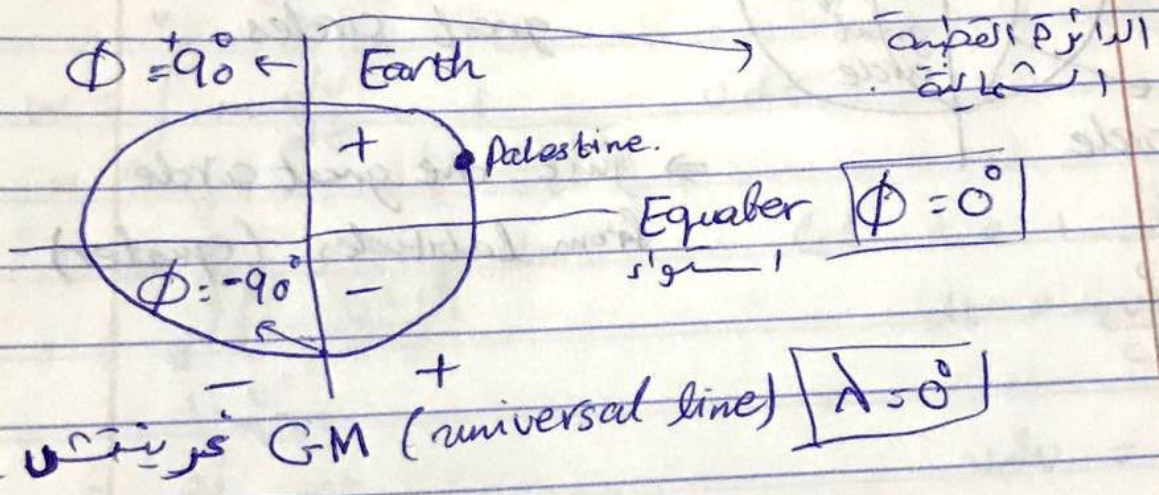 Φ = +90° ← Earth → الدائرة القطبية
الشمالية.
+ Palestine.
Equater Φ = 0°
استواء
Φ = -90° -
- +
غرينتش GM (universal line) λ = 0°